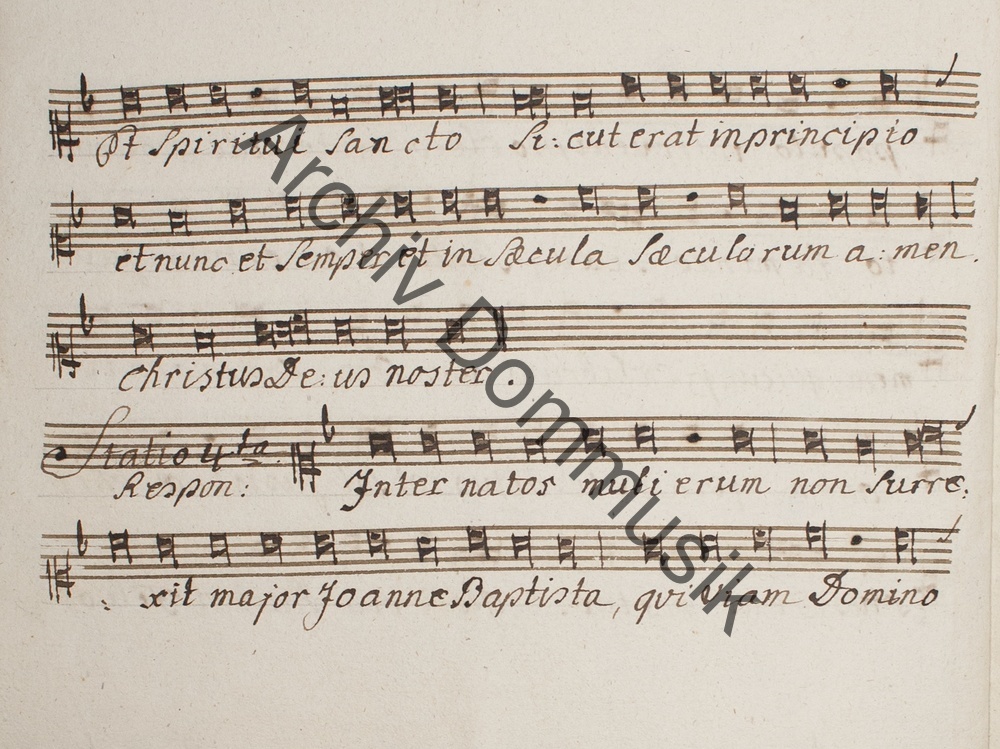 Et Spiritui Sancto Si: cut erat in principio
et nunc et Semper et in Sæcula Sæculorum a: men.
Christus De: us noster.
Statio 4ta.
Respon: Inter natos muli erum non Surre:
: xit major Joanne Baptista, qui Viam Domino
Archiv Dommusik